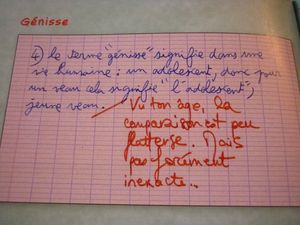 Génisse
4) le terme "génisse" signifie dans une
vie humaine : un adolescent, donc pour
un veau cela signifie "l'adolescent",
jeune veau.
Vu ton âge, la
comparaison est peu
flatteuse. Mais
pas forcément
inexacte...